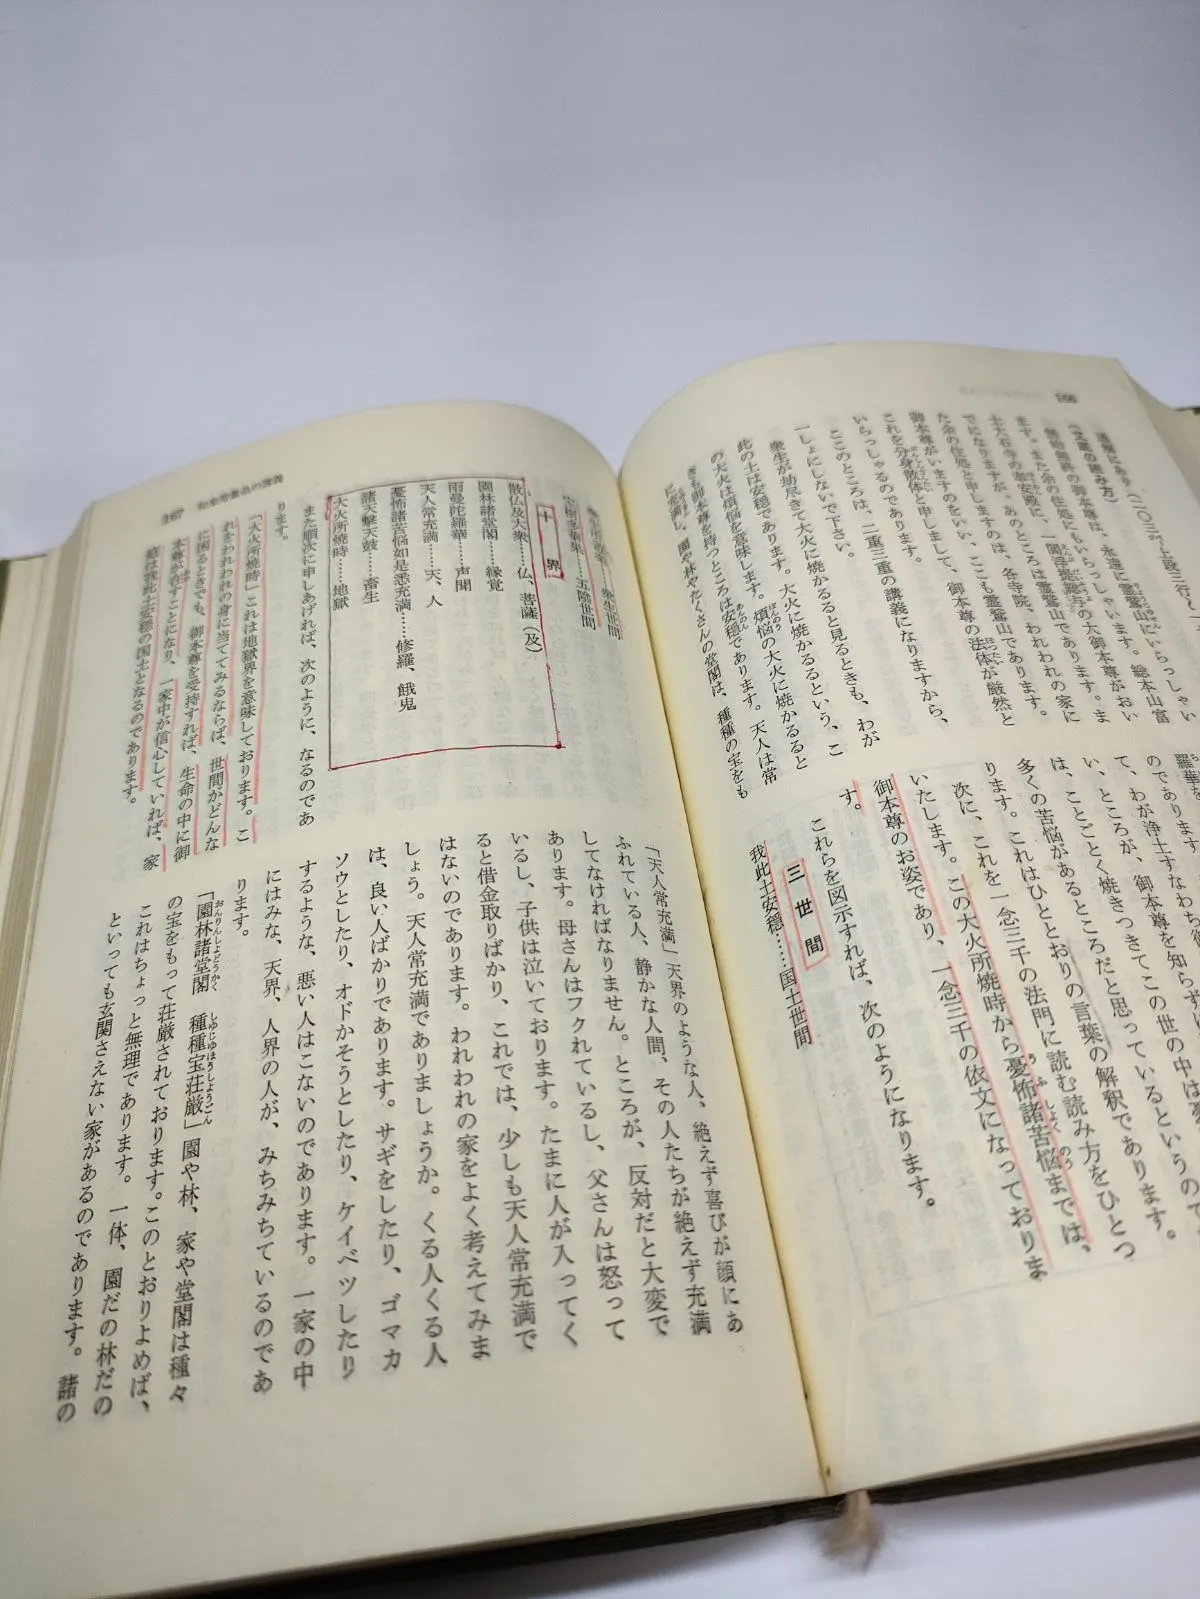 166
通解にあり(二〇三ページ上段三行
(文底の読み方)
無始無終の御本尊は、永遠に霊鷲山にいらっしゃい
ます。また余の住処にもいらっしゃいます。総本山富
士大石寺の奉安殿に、一閻浮提総与の大御本尊がおい
でになりますが、あのところは霊鷲山であります。ま
た余の住処と申しますのは、各寺院、われわれの家に
御本尊がいますのをいい、ここも霊鷲山であります。
これを分身散体と申しまして、御本尊の法体が厳然と
いらっしゃるのであります。
ここのところは、二重三重の講義になりますから、
一しょにしないで下さい。
衆生が劫尽きて大火に焼かるると見るときも、わが
此の土は安穏であります。大火に焼かるるという、こ
の大火は煩悩を意味します。煩悩の大火に焼かるると
きも御本尊を持つところは安穏であります。天人は常
に充満し、園や林やたくさんの堂閣は、種種の宝をも
羅華を
のであります
て、わが浄土すなわち
い、ところが、御本尊を知らずに
は、ことごとく焼きつきてこの世の中は
多くの苦悩があるところだと思っているというので
ります。これはひととおりの言葉の解釈であります。
次に、これを一念三千の法門に読む読み方をひとつ
いたします。この大火所焼時から憂怖諸苦悩までは、
御本尊のお姿であり、一念三千の依文になっておりま
す。
これらを図示すれば、次のようになります。
三世間
我此土安穏……国土世間
167 如来寿量品の講義
衆生所遊楽……衆生世間
宝樹多華果……五陰世間
十界
散仏及大衆……仏、菩薩(及)
園林諸堂閣……縁覚
雨曼陀羅華……声聞
天人常充満……天、人
憂怖諸苦悩如是悉充満……修羅、餓鬼
諸天撃天鼓……畜生
大火所焼時……地獄
また順次に申しあげれば、次のように、なるのであ
ります。
「大火所焼時」これは地獄界を意味しております。こ
れをわれわれの身に当ててみるならば、世間がどんな
に困るときでも、御本尊を受持すれば、生命の中に御
本尊が在すことになり、一家中が信心していれば、家
庭は我此土安穏の国土となるのであります。
「天人常充満」天界のような人、絶えず喜びが顔にあ
ふれている人、静かな人間、その人たちが絶えず充満
してなければなりません。ところが、反対だと大変で
あります。母さんはフクれているし、父さんは怒って
いるし、子供は泣いております。たまに人が入ってく
ると借金取りばかり、これでは、少しも天人常充満で
はないのであります。われわれの家をよく考えてみま
しょう。天人常充満でありましょうか。くる人くる人
は、良い人ばかりであります。サギをしたり、ゴマカ
ソウとしたり、オドかそうとしたり、ケイベツしたり
するような、悪い人はこないのであります。一家の中
にはみな、天界、人界の人が、みちみちているのであ
ります。
「園林諸堂閣 種種宝荘厳」園や林、家や堂閣は種々
の宝をもって荘厳されております。このとおりよめば、
これはちょっと無理であります。一体、園だの林だの
といっても玄関さえない家があるのであります。諸の